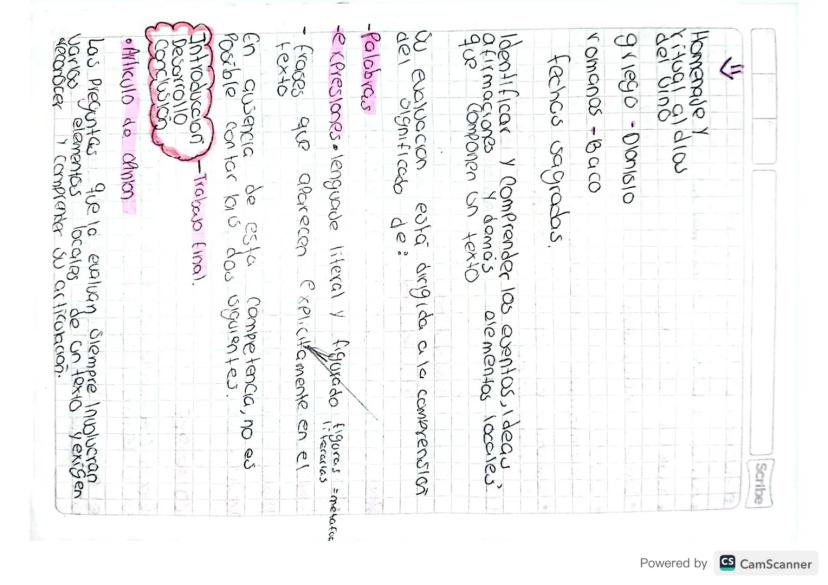 Scribe
Homenaje y
ritual al dios
del vino
griego - Dionisio
romanos - Baco
fechas sagradas.
Identificar y comprender los eventos, ideas,
afirmaciones y demás elementos locales
que componen un texto
Su evaluacion está dirigida a la comprensión
del significado de:
-Palabras
-expresiones • lenguaje literal y figurado figuras = metafora
literarias
- frases que aparecen explicitamente en el
texto
En ausencia de esta competencia, no es
Posible contar las dos siguientes.
Introduccion
Desarrollo
Conclusión
- Trabajo final.
• Articulo de opinion
Las preguntas que la evaluan siempre involucran
varios elementos locales de un texto y exigen
reconocer y comprender su articulación.
Powered by CS CamScanner